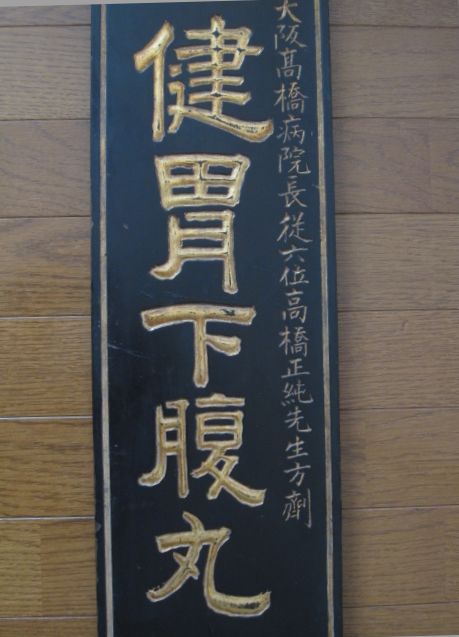 大阪髙橋病院長従六位高橋正純先生方劑
健胃下腹丸